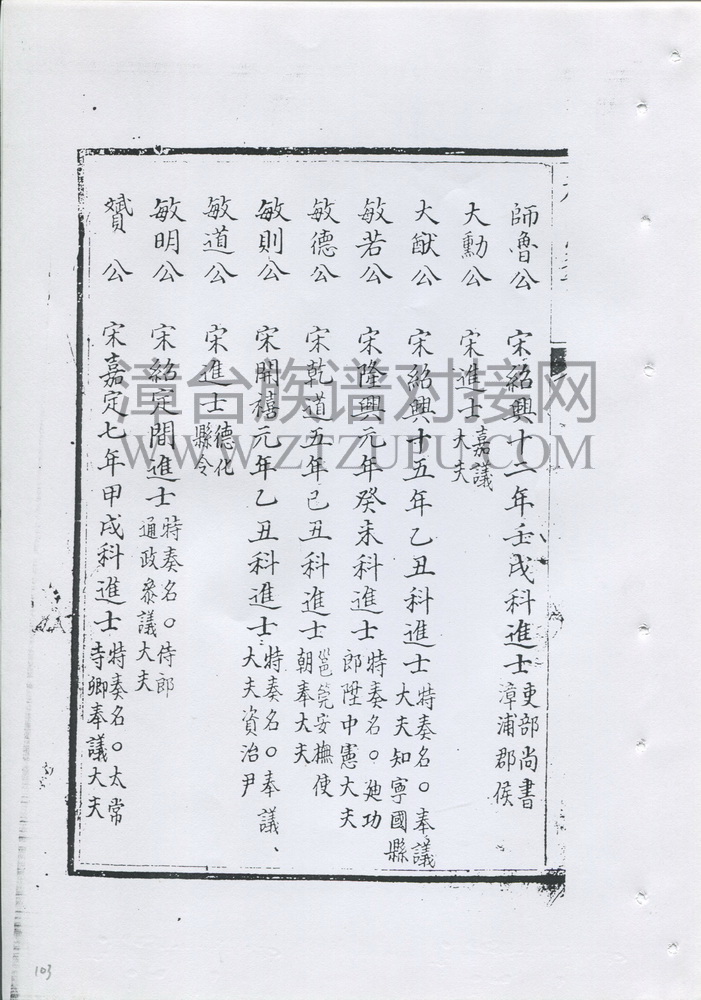 師魯公 宋紹興十二年壬戌科進士 吏部尚書 漳浦郡侯
大勳公 宋進士 嘉議大夫
大猷公 宋紹興十五年乙丑科進士 特奏名。奉議大夫知寧國縣
敏若公 宋隆興元年癸未科進士 特奏名。廸功郎陞中憲大夫
敏德公 宋乾道五年己丑科進士 邕筦安撫使 朝奉大夫
敏則公 宋開禧元年乙丑科進士 特奏名。奉議、大夫資治尹
敏道公 宋進士 德化縣令
敏明公 宋紹定間進士 特奏名。侍郎 通政參議大夫
贇公 宋嘉定七年甲戌科進士 特奏名。太常寺卿奉議大夫
漳台族谱对接网
WWW.ZTZUPU.COM
103